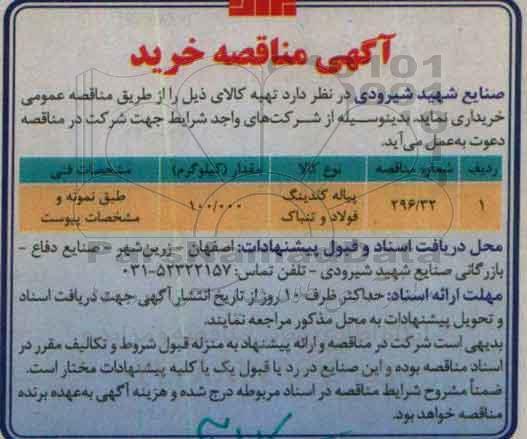 آگهی مناقصه خرید
صنایع شهید شیرودی در نظر دارد تهیه کالای ذیل را از طریق مناقصه عمومی
خریداری نماید. بدینوسیله از شرکت‌های واجد شرایط جهت شرکت در مناقصه
دعوت به‌عمل می‌آید.
ردیف شماره مناقصه نوع کالا مقدار (کیلوگرم) مشخصات فنی
۱ ۲۹۶/۳۲ پیاله کلدینگ فولاد و تنباک ۱۰۰/۰۰۰ طبق نمونه و مشخصات پیوست
محل دریافت اسناد و قبول پیشنهادات: اصفهان - زرین‌شهر - صنایع دفاع -
بازرگانی صنایع شهید شیرودی - تلفن تماس: ۵۲۲۲۲۱۵۷-۰۳۱
مهلت ارائه اسناد: حداکثر ظرف ۱۰ روز از تاریخ انتشار آگهی جهت دریافت اسناد
و تحویل پیشنهادات به محل مذکور مراجعه نمایند.
بدیهی است شرکت در مناقصه و ارائه پیشنهاد به منزله قبول شروط و تکالیف مقرر در
اسناد مناقصه بوده و این صنایع در رد یا قبول یک یا کلیه پیشنهادات مختار است.
ضمناً مشروح شرایط مناقصه در اسناد مربوطه درج شده و هزینه آگهی به‌عهده برنده
مناقصه خواهد بود.